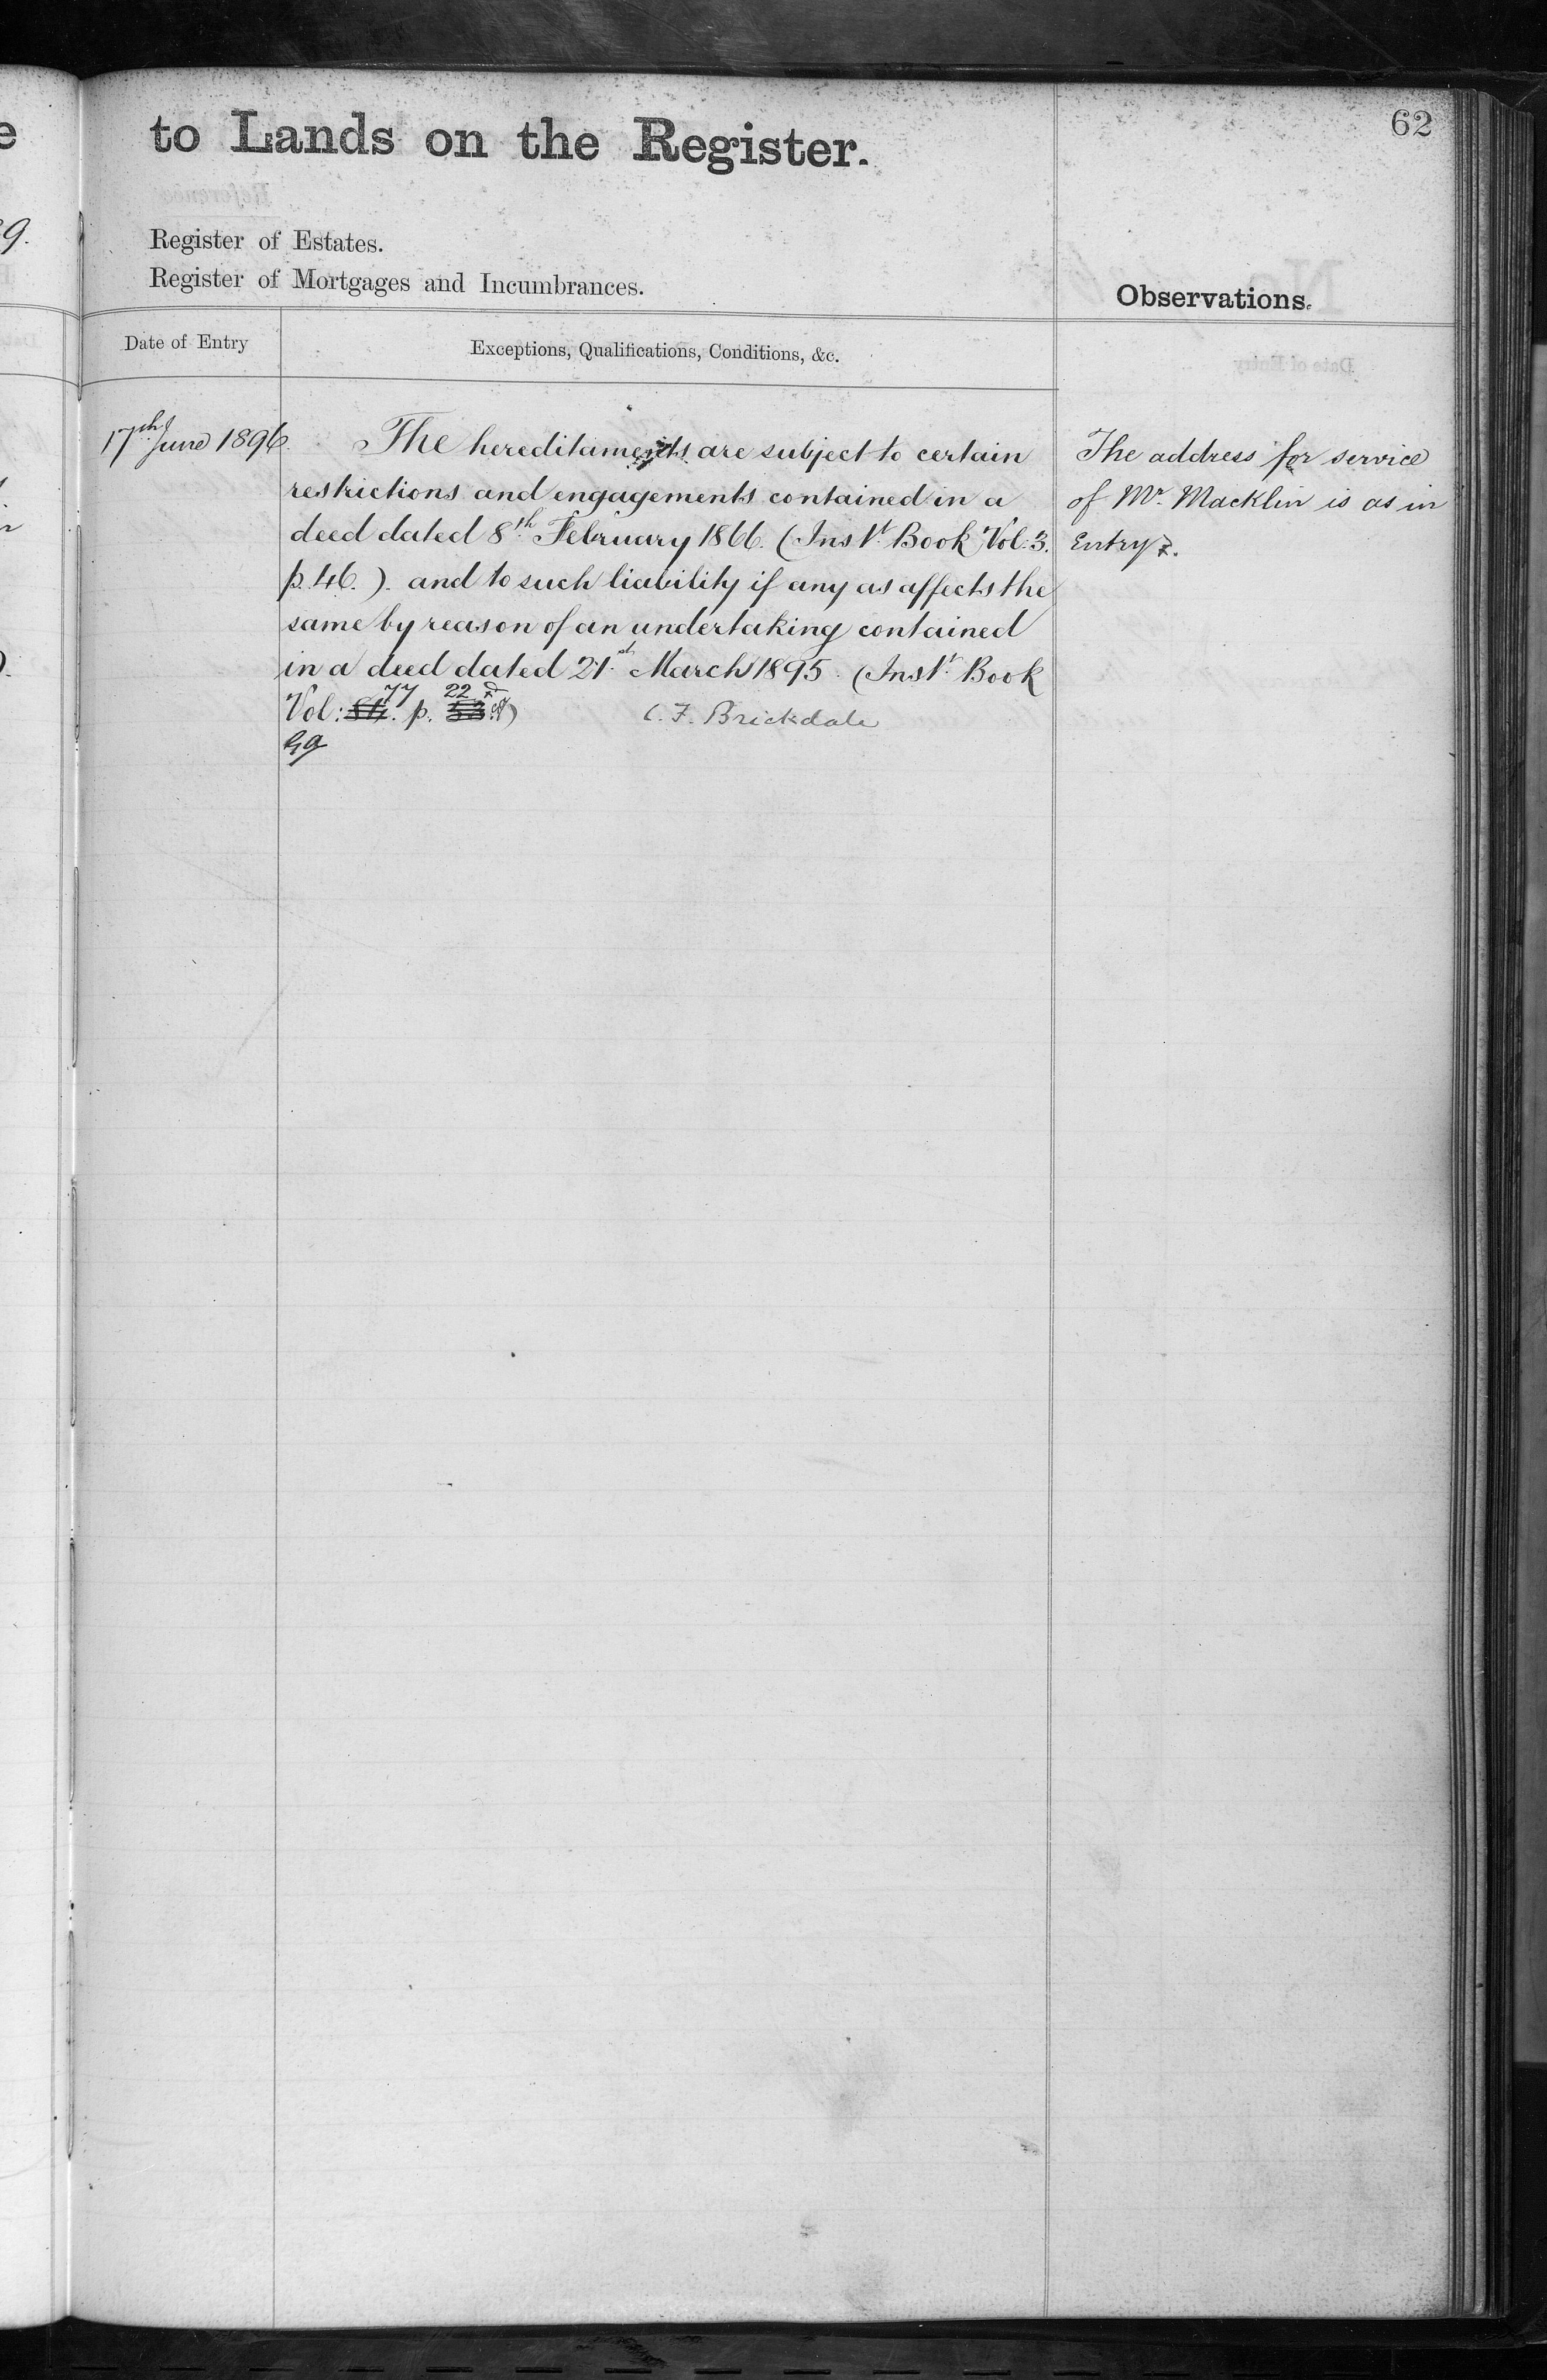 62
to Lands on the Register.
Register of Estates.
Register of Mortgages and Incumbrances.
Observations.
Date of Entry
Exceptions, Qualifications, Conditions, &c.
17th June 1896.
The hereditaments are subject to certain
restrictions and engagements contained in a
deed dated 8th February 1866. (Inst. Book Vol: 3.
p. 46.). and to such liability if any as affects the
same by reason of an undertaking contained
in a deed dated 21st March 1895. (Inst. Book
77 22
Vol: p.
C. F. Brickdale
The address for service
of Mr. Macklin is as in
Entry